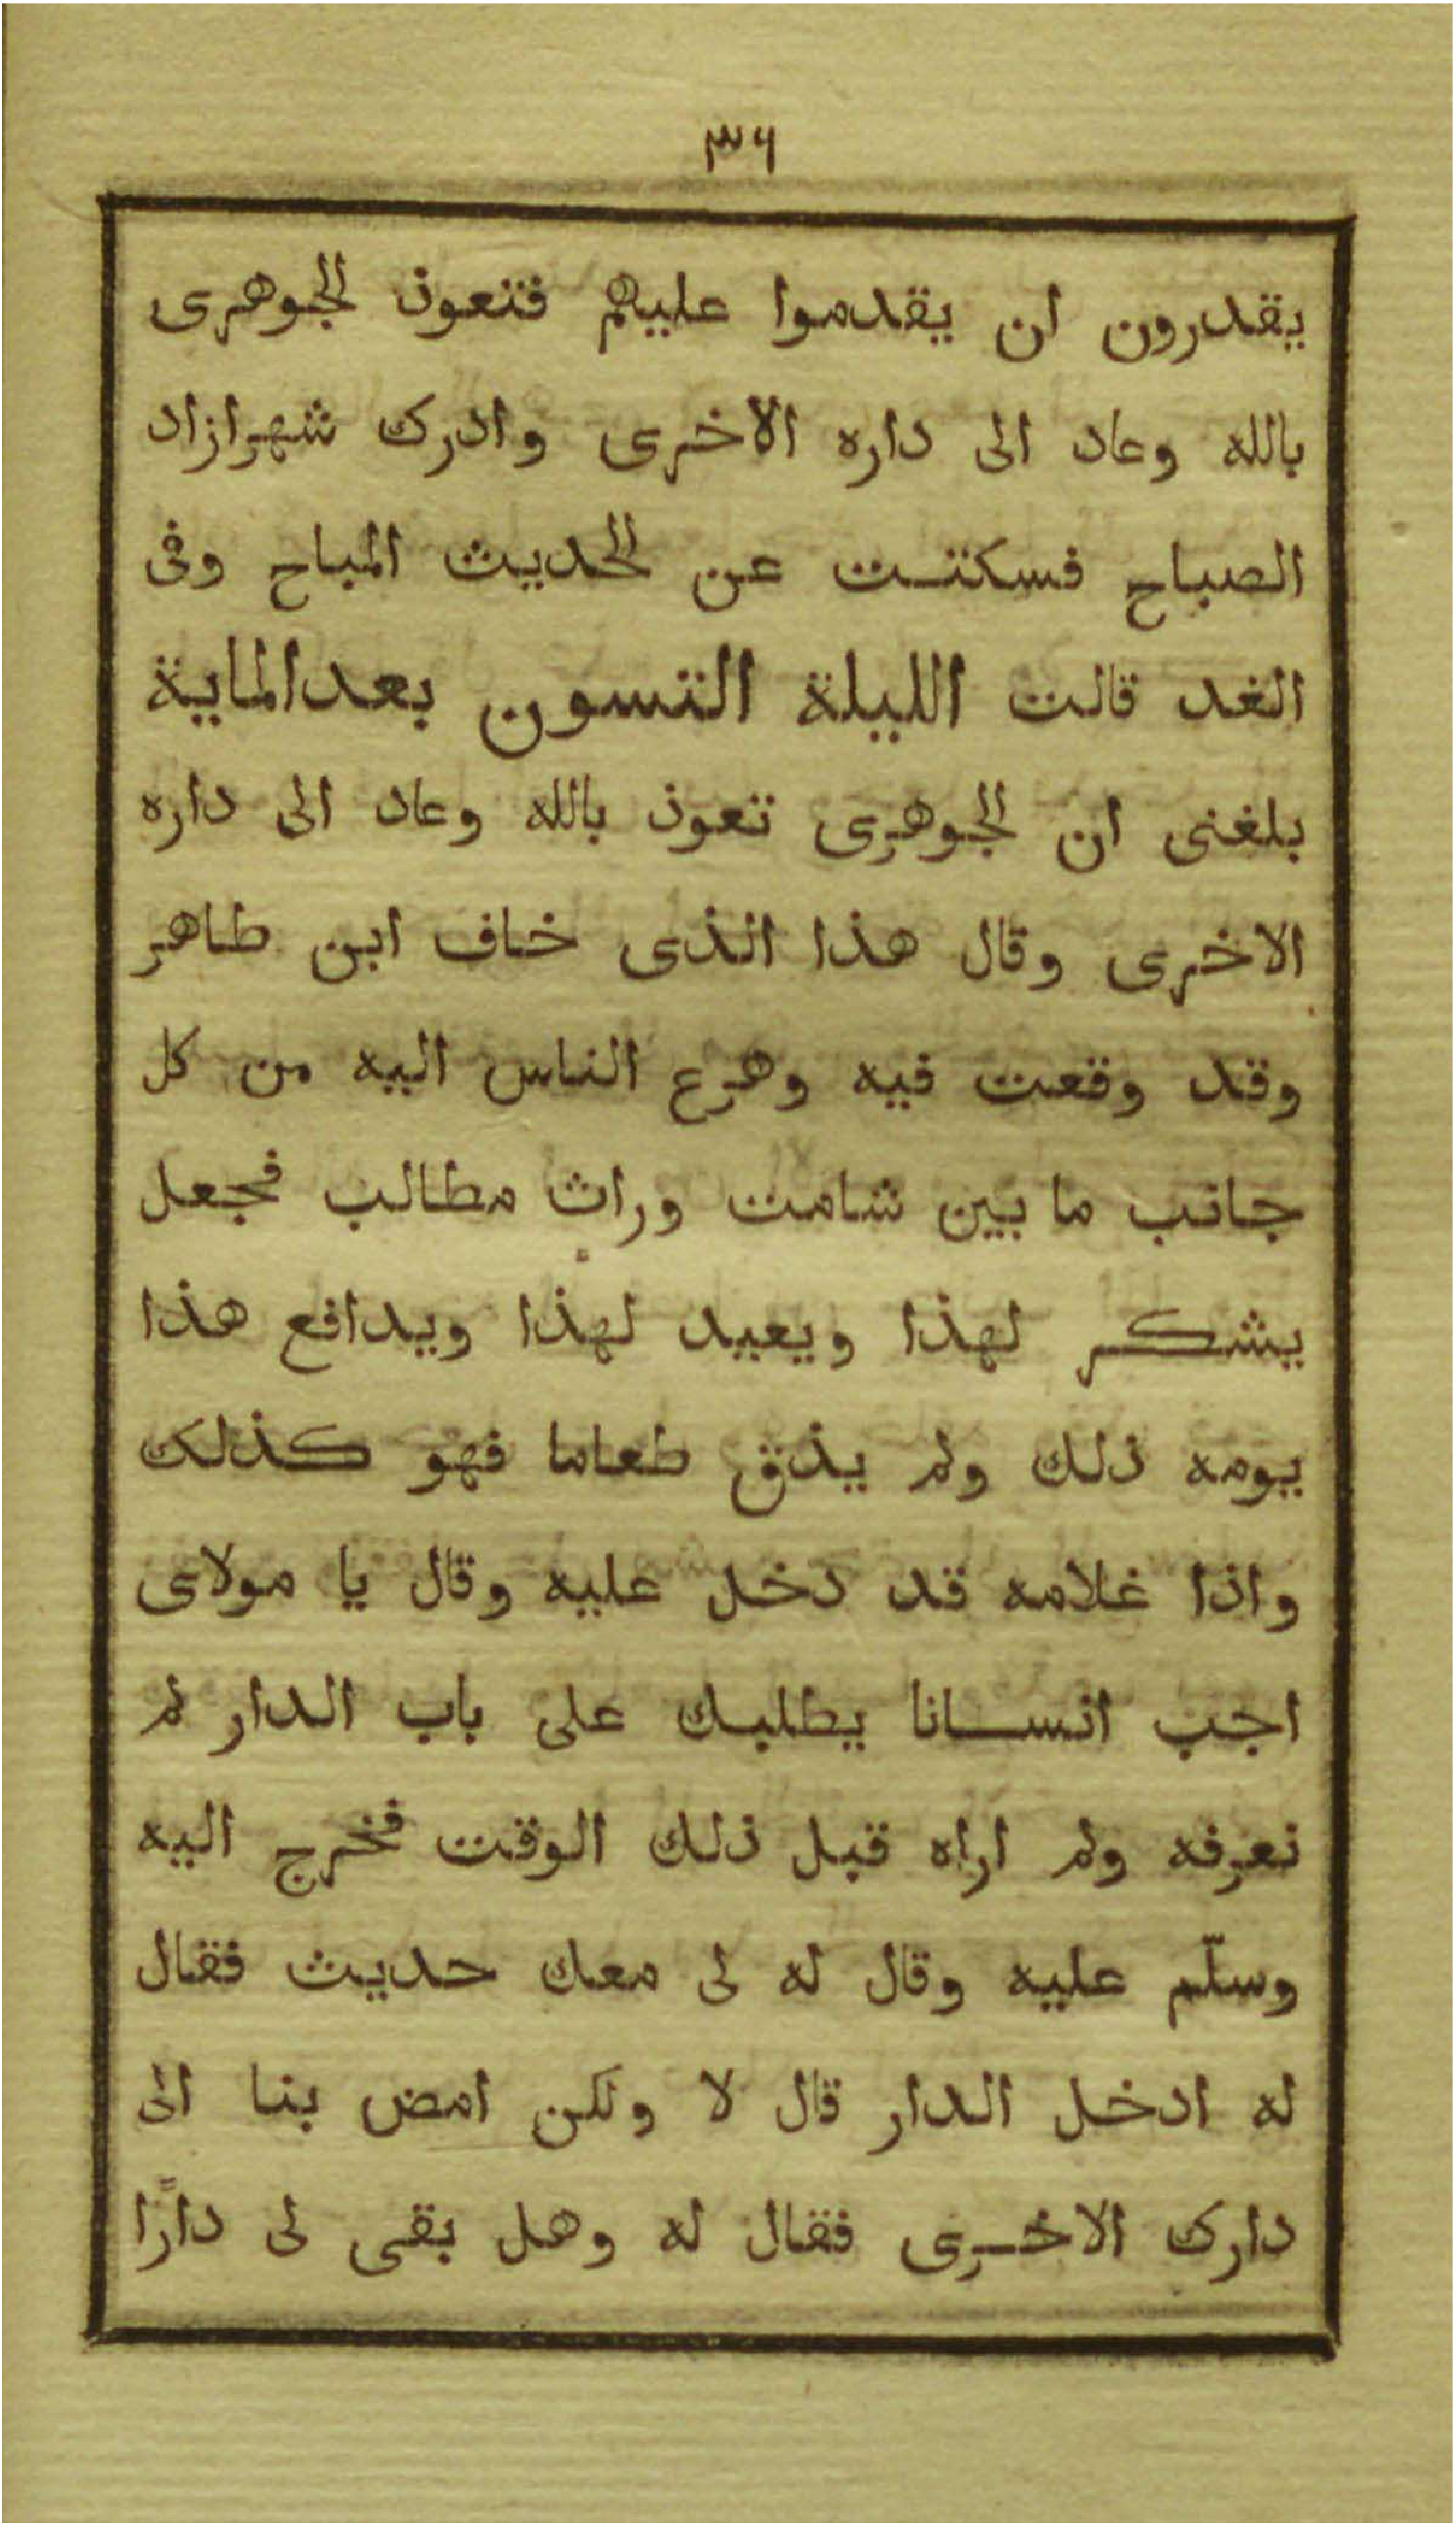 ٣٦
يقدرون ان يقدموا عليهم فتعوذ الجوهرى
بالله وعاد الى داره الاخرى وادرك شهرازاد
الصباح فسكتت عن الحديث المباح وفى
الغد قالت الليلة التسون بعدالماية
بلغنى ان الجوهرى تعوذ بالله وعاد الى داره
الاخرى وقال هذا الذى خاف ابن طاهر
وقد وقعت فيه وهرع الناس اليه من كل
جانب ما بين شامت وراث مطالب فجعل
يشكر لهذا ويعيد لهذا ويدافع هذا
يومه ذلك ولم يذق طعاما فهو كذلك
واذا غلامه قد دخل عليه وقال يا مولاى
اجب انسانا يطلبك على باب الدار لم
نعرفه ولم اراه قبل ذلك الوقت فخرج اليه
وسلّم عليه وقال له لى معك حديث فقال
له ادخل الدار قال لا ولكن امض بنا الى
دارك الاخرى فقال له وهل بقى لى دارًا